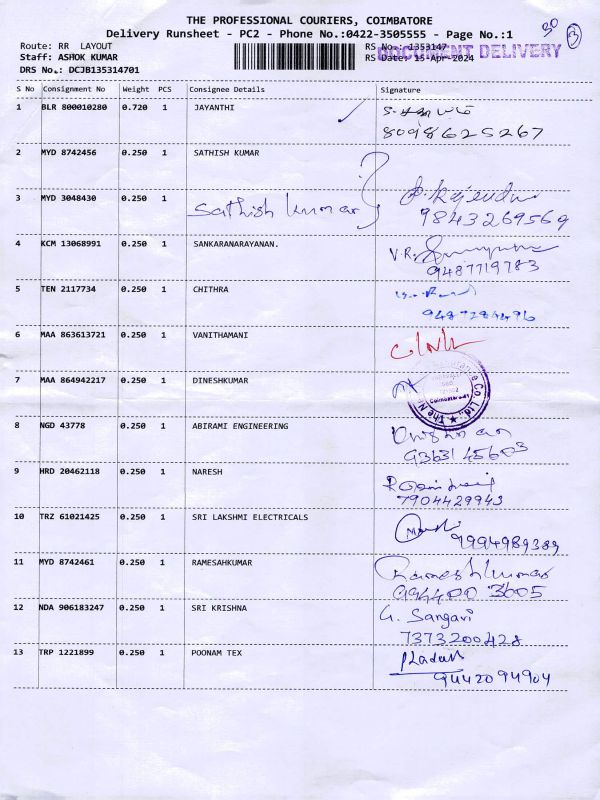 THE PROFESSIONAL COURIERS, COIMBATORE
Delivery Runsheet - PC2 - Phone No.:0422-3505555 - Page No.:1
30
3
Route: RR LAYOUT
RS No.: 1353147
DOCUMENT DELIVERY
Staff: ASHOK KUMAR
RS Date: 15-Apr-2024
DRS No.: DCJB135314701
S No Consignment No Weight PCS Consignee Details Signature
1 BLR 800010280 0.720 1 JAYANTHI
8098625267
2 MYD 8742456 0.250 1 SATHISH KUMAR
3 MYD 3048430 0.250 1 Sathish kumar
9843269569
4 KCM 13068991 0.250 1 SANKARANARAYANAN. V.R.
9487719783
5 TEN 2117734 0.250 1 CHITHRA
9487284496
6 MAA 863613721 0.250 1 VANITHAMANI
7 MAA 864942217 0.250 1 DINESHKUMAR
Coimbatore
8 NGD 43778 0.250 1 ABIRAMI ENGINEERING
9363145603
9 HRD 20462118 0.250 1 NARESH
7904429943
10 TRZ 61021425 0.250 1 SRI LAKSHMI ELECTRICALS
9994989389
11 MYD 8742461 0.250 1 RAMESAHKUMAR Rameshkumar
994400 3605
12 NDA 906183247 0.250 1 SRI KRISHNA G. Sangavi
7373200428
13 TRP 1221899 0.250 1 POONAM TEX
9442094904